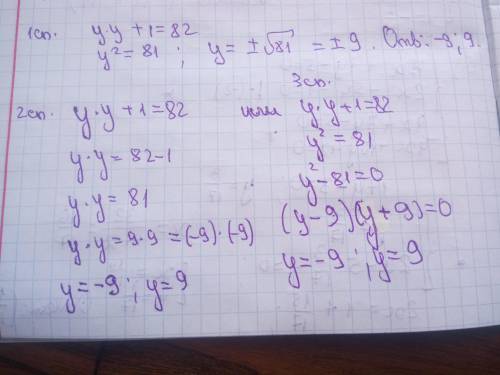 1сп. y·y+1=82
y²=81; y=±√81 = ±9. Отв: -9; 9.
2сп. y·y+1=82
y·y=82-1
y·y=81
y·y=9·9=(-9)·(-9)
y=-9; y=9
или
3сп.
y·y+1=82
y²=81
y²-81=0
(y-9)(y+9)=0
y=-9; y=9